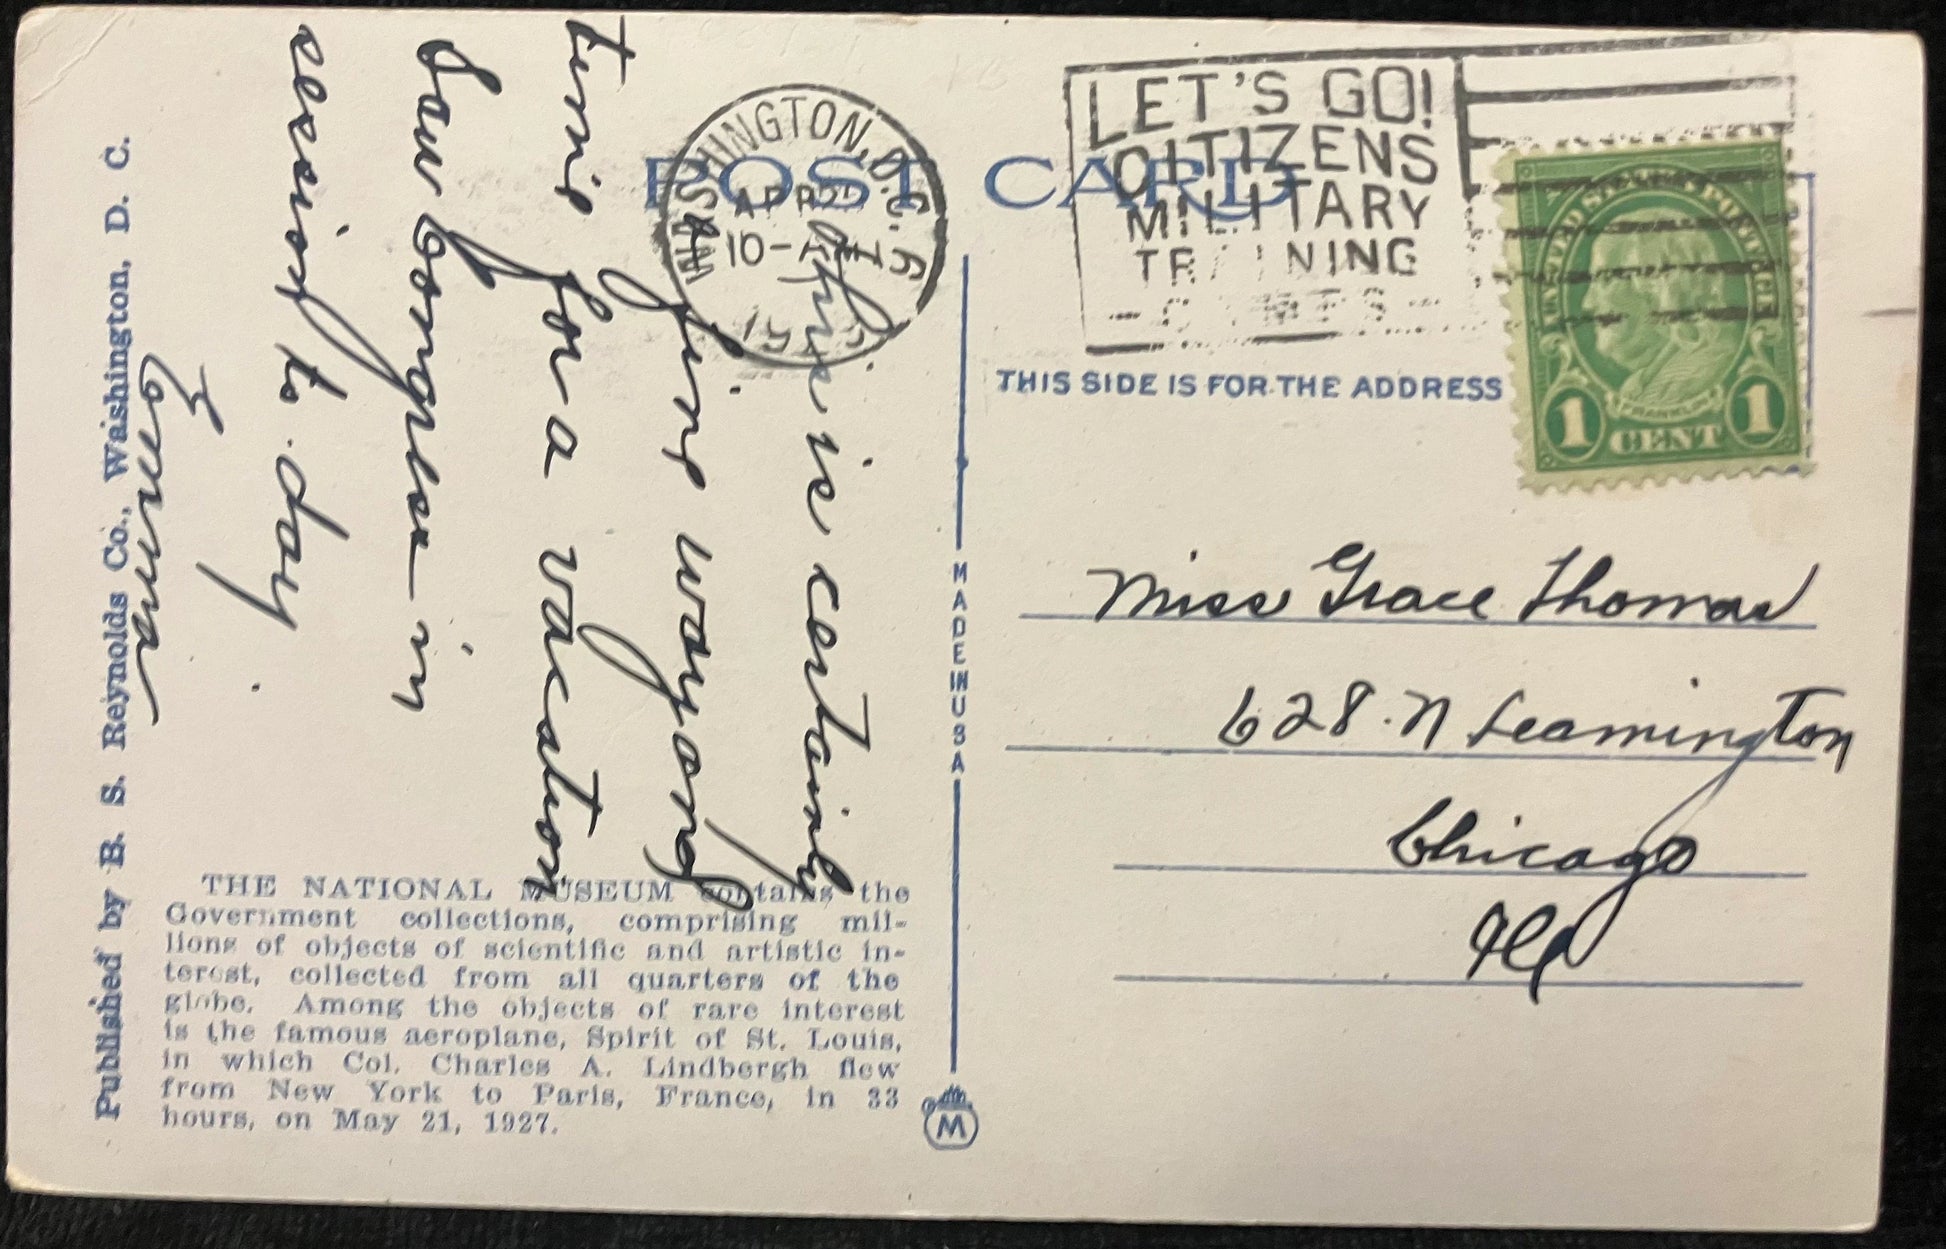 POST CARD
WASHINGTON, D.C. 6
APR 2
10-
LET'S GO!
CITIZENS
MILITARY
TRAINING
UNITED STATES POSTAGE
FRANKLIN
1 CENT 1
THIS SIDE IS FOR THE ADDRESS
Miss Grace Thomas
628 N Leamington
Chicago
Ill
This is certainly
fine way and
time for a vacation
Saw Congress in
session to day.
Emma
MADE IN USA
THE NATIONAL MUSEUM contains the
Government collections, comprising mil-
lions of objects of scientific and artistic in-
terest, collected from all quarters of the
globe. Among the objects of rare interest
is the famous aeroplane, Spirit of St. Louis,
in which Col. Charles A. Lindbergh flew
from New York to Paris, France, in 33
hours, on May 21, 1927.
M
Published by B. S. Reynolds Co., Washington, D. C.